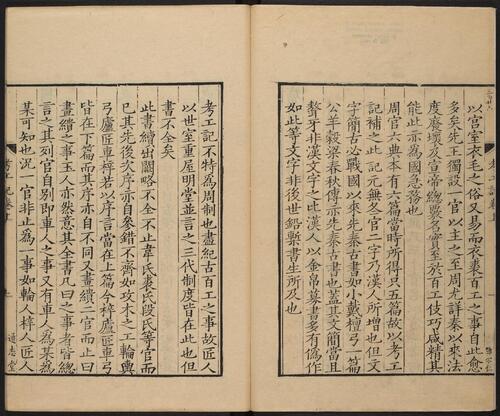 以宮室衣毛之俗又易而衣裘百工之事自此愈
多矣先王獨設一官以主之至周尤詳秦以來法
度廢壞及宣帝總覈名實至於百工伎巧咸精其
能此亦足為國急務也
周官六典本有六篇當時所得只五篇故以考工
記補之此記元無冬官二字乃漢人所增也但文
字簡古必戰國以來先秦古書如小戴檀弓一篇
公羊穀梁春秋傳亦先秦古書也蓋其文簡當且
聱牙非漢文字之比漢人以金帛募書多有偽作
如此等文字非後世鉛槧書生所及也
考工記不特為周制也盡紀古百工之事故匠人
以世室重屋明堂並言之三代制度皆在此也但
書不全矣
此書續出闕略不全不止韋氏裘氏段氏等官而
已其先後次序亦自參錯不齊如攻木之工輪輿
弓廬匠車梓若以序言當在上篇今梓廬匠車弓
皆在下篇而其六序亦自不同又畫繢二官而止曰
畫繢之事玉人亦然意其全書凡曰之事者皆總
言之其列官自別即車人之事又有車人為某為
某可知也況一官非止為一事如輪人梓人匠人
通志堂